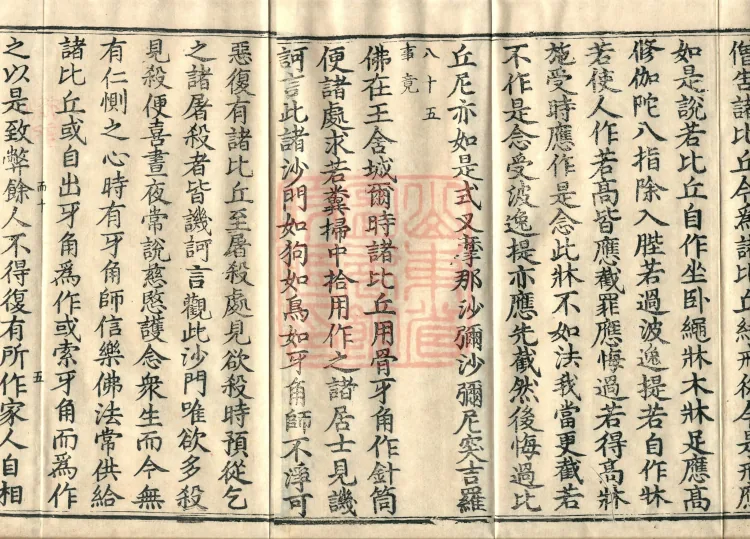 如是說若比丘自作坐卧繩牀木牀足應高
脩伽陀八指除入䏶若過波逸提若自作牀
若使人作若高皆應截罪應悔過若得高牀
施受時應作是念此牀不如法我當更截若
不作是念受波逸提亦應先截然後悔過比
丘尼亦如是式叉摩那沙彌沙彌尼突吉羅
八十五
事竟
佛在王舍城爾時諸比丘用骨牙角作針筒
便諸處求若糞掃中拾用作之諸居士見譏
訶言此諸沙門如狗如鳥如牙角師不淨可
惡復有諸比丘至屠殺處見欲殺時預從乞
之諸屠殺者皆譏訶言觀此沙門唯欲多殺
見殺便喜晝夜常說慈愍護念衆生而今無
有仁惻之心時有牙角師信樂佛法常供給
諸比丘或自出牙角爲作或索牙角而爲作
而十
五
之以是致弊餘人不得復有所作家人自相